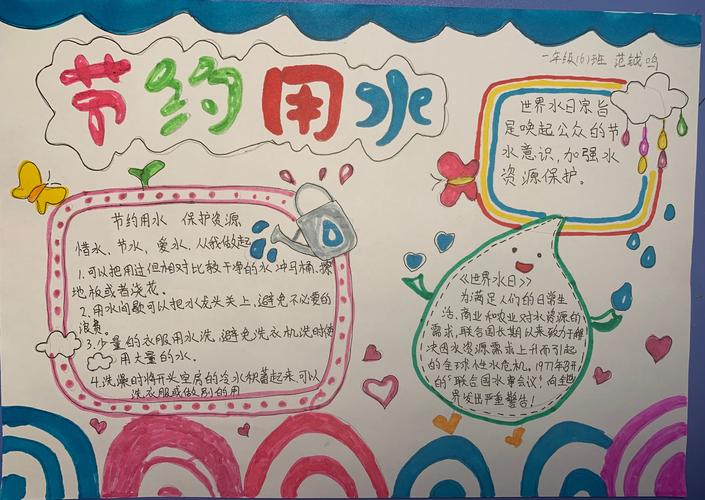 节约用水
一年级(6)班 范钺鸣
世界水日宗旨
是唤起公众的节
水意识，加强水
资源保护。
节约用水 保护资源
惜水、节水、爱水，从我做起
1.可以把用过但相对比较干净的水冲马桶、擦
地板或者浇花。
2.用水间歇可以把水龙头关上，避免不必要的
浪费。
3.少量的衣服用水洗，避免洗衣机洗时使
用大量的水。
4.洗澡时将开头空层的冷水积蓄起来，可以
洗衣服或做别的用
《世界水日》
为满足人们的日常生
活、商业和农业对水资源的
需求，联合国长期以来致力于解
决因水资源需求上升而引起
的全球性水危机。1977年召开
的“联合国水事会议”，向全世
界发出严重警告！